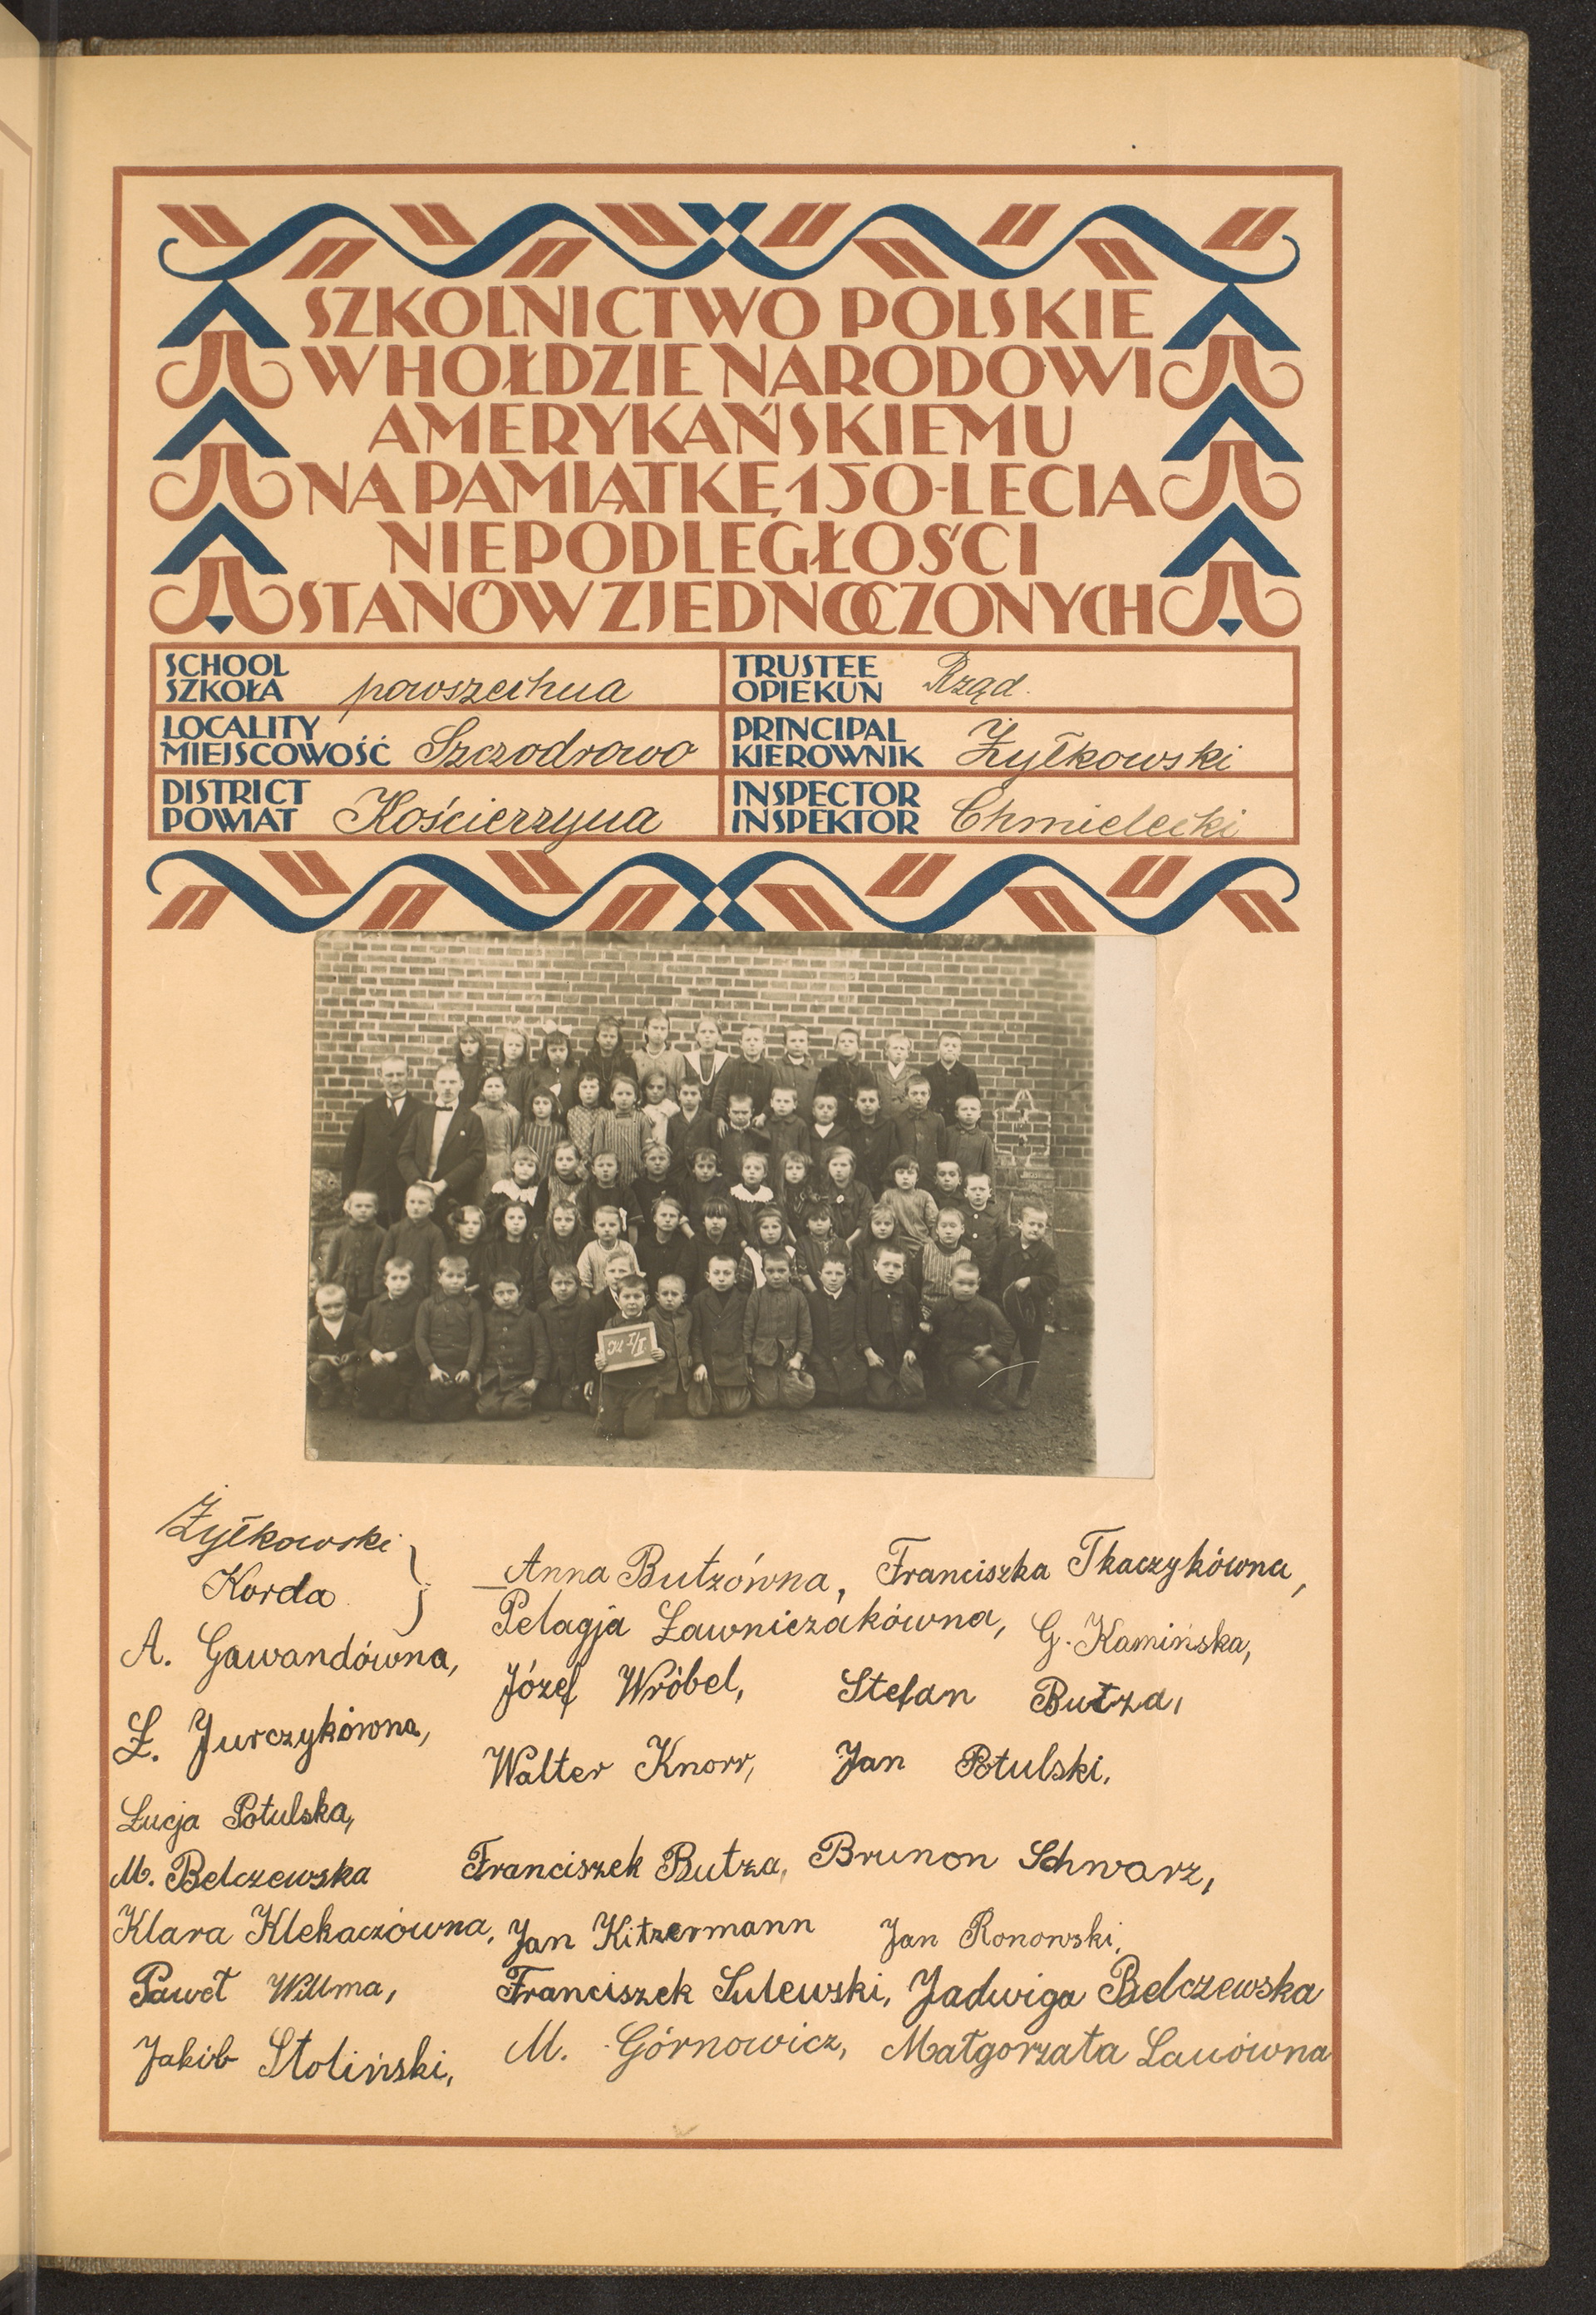 SZKOLNICTWO POLSKIE
W HOŁDZIE NARODOWI
AMERYKAŃSKIEMU
NA PAMIĄTKĘ 150-LECIA
NIEPODLEGŁOŚCI
STANÓW ZJEDNOCZONYCH
SCHOOL
SZKOŁA powszechna
TRUSTEE
OPIEKUN Rząd.
LOCALITY
MIEJSCOWOŚĆ Szczodrowo
PRINCIPAL
KIEROWNIK Żyłkowski
DISTRICT
POWIAT Kościerzyna
INSPECTOR
INSPEKTOR Chmielecki
Żyłkowski
Korda
A. Gawandówna,
Ł. Jurczykówna,
Łucja Potulska,
M. Belczewska
Klara Klekaczówna,
Paweł Willma,
Jakób Stoliński,
Anna Butzówna, Franciszka Tkaczykówna,
Pelagja Ławniczakówna, G. Kamińska,
Józef Wróbel, Stefan Butza,
Walter Knorr, Jan Potulski,
Franciszek Butza, Brunon Schwarz,
Jan Kitzermann Jan Ronowski,
Franciszek Sulewski, Jadwiga Belczewska
M. Górnowicz, Małgorzata Lauówna